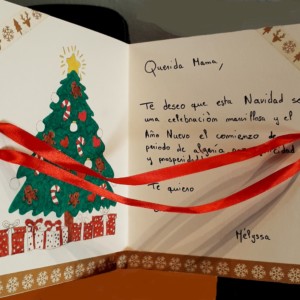 Querida Mama,
Te deseo que esta Navidad sea
una celebración maravillosa y el
Año Nuevo el comienzo de
periodo de alegría
y prosperidad
Te quiero
Melyssa